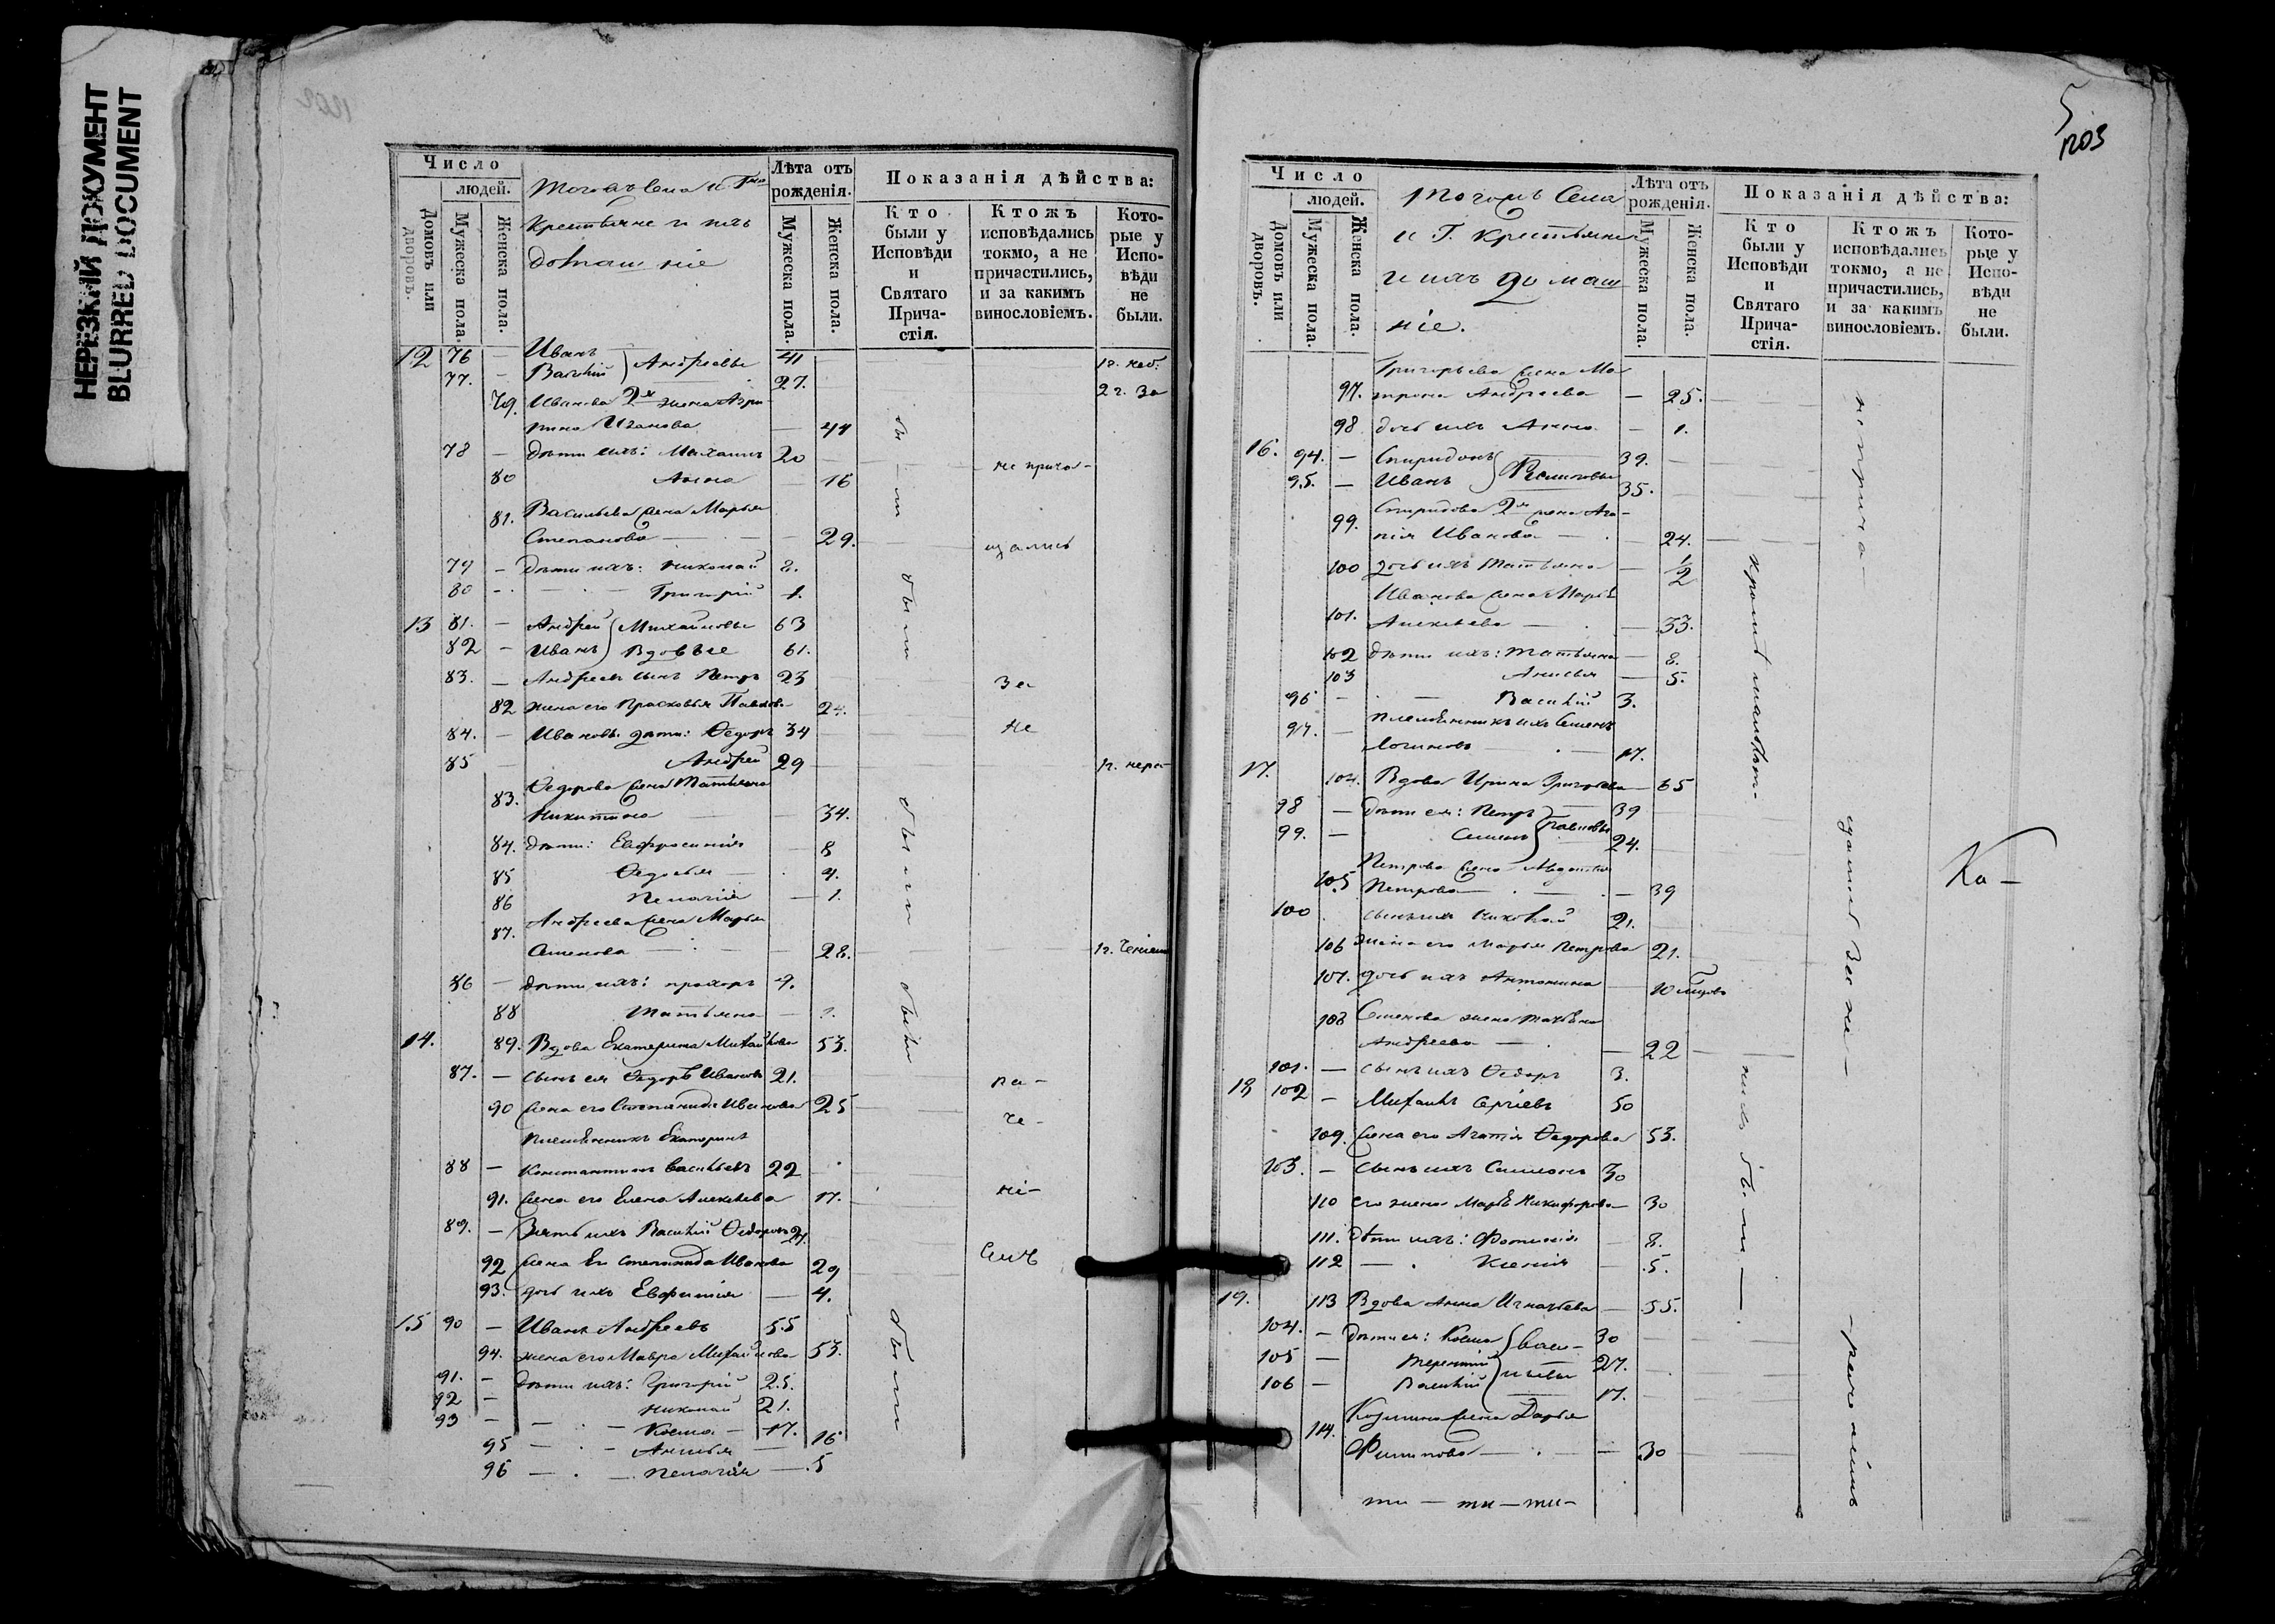 НЕРЕЗКИЙ ДОКУМЕНТ
BLURRED DOCUMENT
Число
людей.
Домовъ или дворовъ.
Мужеска пола.
Женска пола.
Тогожъ Села и Г.
Крестьяне и ихъ
домашніе
Лѣта отъ рожденія.
Мужеска пола.
Женска пола.
Показанія дѣйства:
Кто были у Исповѣди и Святаго Причастія.
Ктожъ исповѣдались токмо, а не причастились, и за какимъ винословіемъ.
Которые у Исповѣди не были.
12 76 — Иванъ } Андреевы 41
77. — Василій 27.
79. Иванова 2я жена Агри
пина Иванова — 44
78 — дѣти ихъ: Михаилъ 20
80 Анна — 16
81. Васильева жена Марья
Степанова — 29.
79 — дѣти ихъ: Николай 8.
80 — Григорій 1.
13 81. — Андрей } Михайловы 63
82 — Иванъ } Вдовые 61.
83. — Андреевъ сынъ Петръ 23
82 жена его Прасковья Павлова 24.
84. — Ивановы дѣти: Ѳедоръ 34
85 — Андрей 29
83. Ѳедорова жена Татьяна
Никитина — 34.
84. дѣти: Евфросинія — 8
85 Ѳедосья — 4.
86 Пелагія — 1.
87. Андреева жена Марья
Семенова — 28.
86 — дѣти ихъ: Прохоръ 4.
88 Татьяна — 1.
14. 89. Вдова Екатерина Михайлова 53.
87. — сынъ ея Ѳедоръ Ивановъ 21.
90 жена его Степанида Иванова 25
племянникъ Екатерины
88 — Константинъ Васильевъ 22
91. жена его Елена Алексѣева 17.
89. — Зять ихъ Василій Ѳедоровъ
92 жена Его Степанида Иванова 29
93. дочь ихъ Евфимія — 4.
15 90 — Иванъ Андреевъ 55
94. жена его Мавра Михайлова 53.
91. — дѣти ихъ: Григорій 25.
92 — Николай 21.
93 — Косма — 17.
95 — Анисья — 16
96 — Пелагія — 5
не прича-
щались
за
не
ра-
че-
ні-
емъ
были
были
были
были
5
1203
Число
людей.
Домовъ или дворовъ.
Мужеска пола.
Женска пола.
Тогожъ Села
и Г. Крестьяне
и ихъ домаш
ніе.
Лѣта отъ рожденія.
Мужеска пола.
Женска пола.
Показанія дѣйства:
Кто были у Исповѣди и Святаго Причастія.
Ктожъ исповѣдались токмо, а не причастились, и за какимъ винословіемъ.
Которые у Исповѣди не были.
Григорьева жена Ма
97. трона Андреева — 25.
98 дочь ихъ Анна — 1.
16. 94. — Спиридонъ } Филиповы 39.
95. — Иванъ 35.
Спиридова 2я жена Ага-
99. пія Иванова — 24.
100 дочь ихъ Татьяна — 1/2
Иванова жена Марья
101. Алексѣева — 33.
102 дѣти ихъ: Татьяна — 8.
103 Анисья — 5.
96 — Василій 3.
97. — племянникъ ихъ Семенъ
Логиновъ — 17.
17. 104. Вдова Ирина Григорьева — 65
98 — дѣти ея: Петръ } Павловы 39
99. — Семенъ 24.
Петрова жена Авдотья
105 Петрова — 39
100 сынъ ихъ Николай 21.
106 жена его Марья Петрова 21.
107. дочь ихъ Антонина — 10 мѣсцовъ
108 Семенова жена Татьяна
Андреева — 22
101. — сынъ ихъ Ѳедоръ 3.
18 102 — Михаилъ Сергіевъ 50
109. жена его Агафія Ѳедорова 53.
103. — сынъ ихъ Симеонъ 30
110 его жена Марья Никифорова — 30
111. дѣти ихъ: Фотинія — 8.
112 — Ксенія — 5.
19. 113 Вдова Анна Игнатьева — 55.
104. — дѣти ея: Косма } Васи- 30
105 — Терентій } льевы 27.
106 — Василій 17.
114. Козмина жена Дарья
Филипова — 30
ти — ти — ти —
неприча-
кромѣ малолѣт-
нихъ были
Ка-